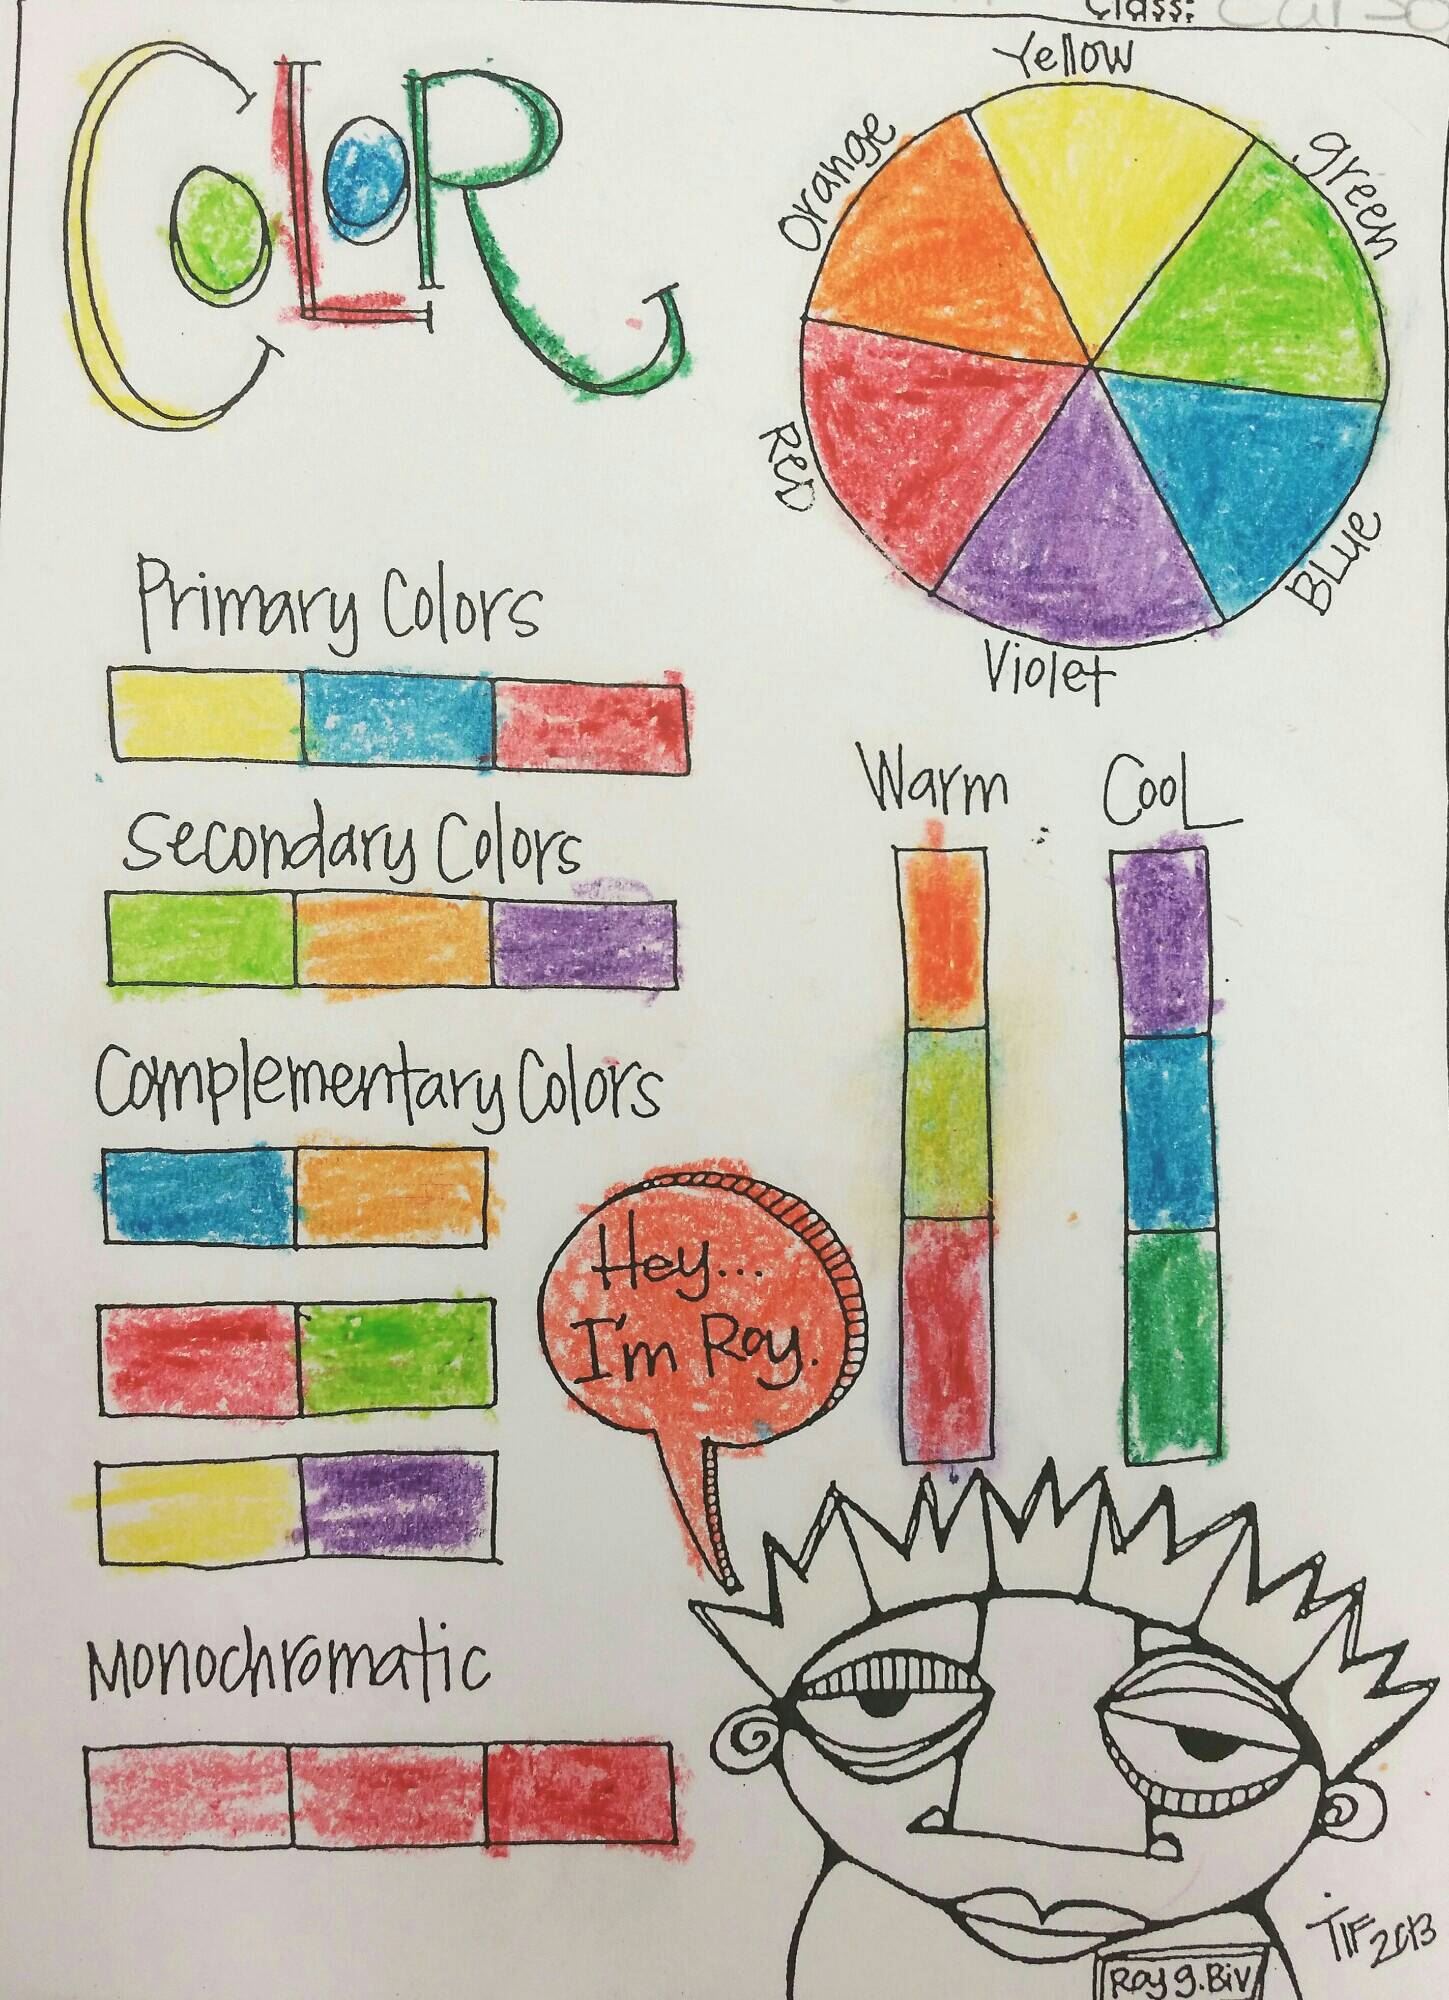 Class:
COLOR
Yellow
Orange
green
Red
BLue
Violet
Primary Colors
Secondary Colors
Complementary Colors
Monochromatic
Warm
CooL
Hey...
I'm Roy.
Roy g. Biv
TIF 2013